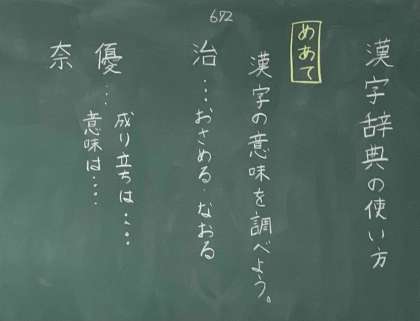 漢字辞典の使い方
めあて
漢字の意味を調べよう。
治…おさめる…なおる
692
優…成り立ちは…
意味は…
奈